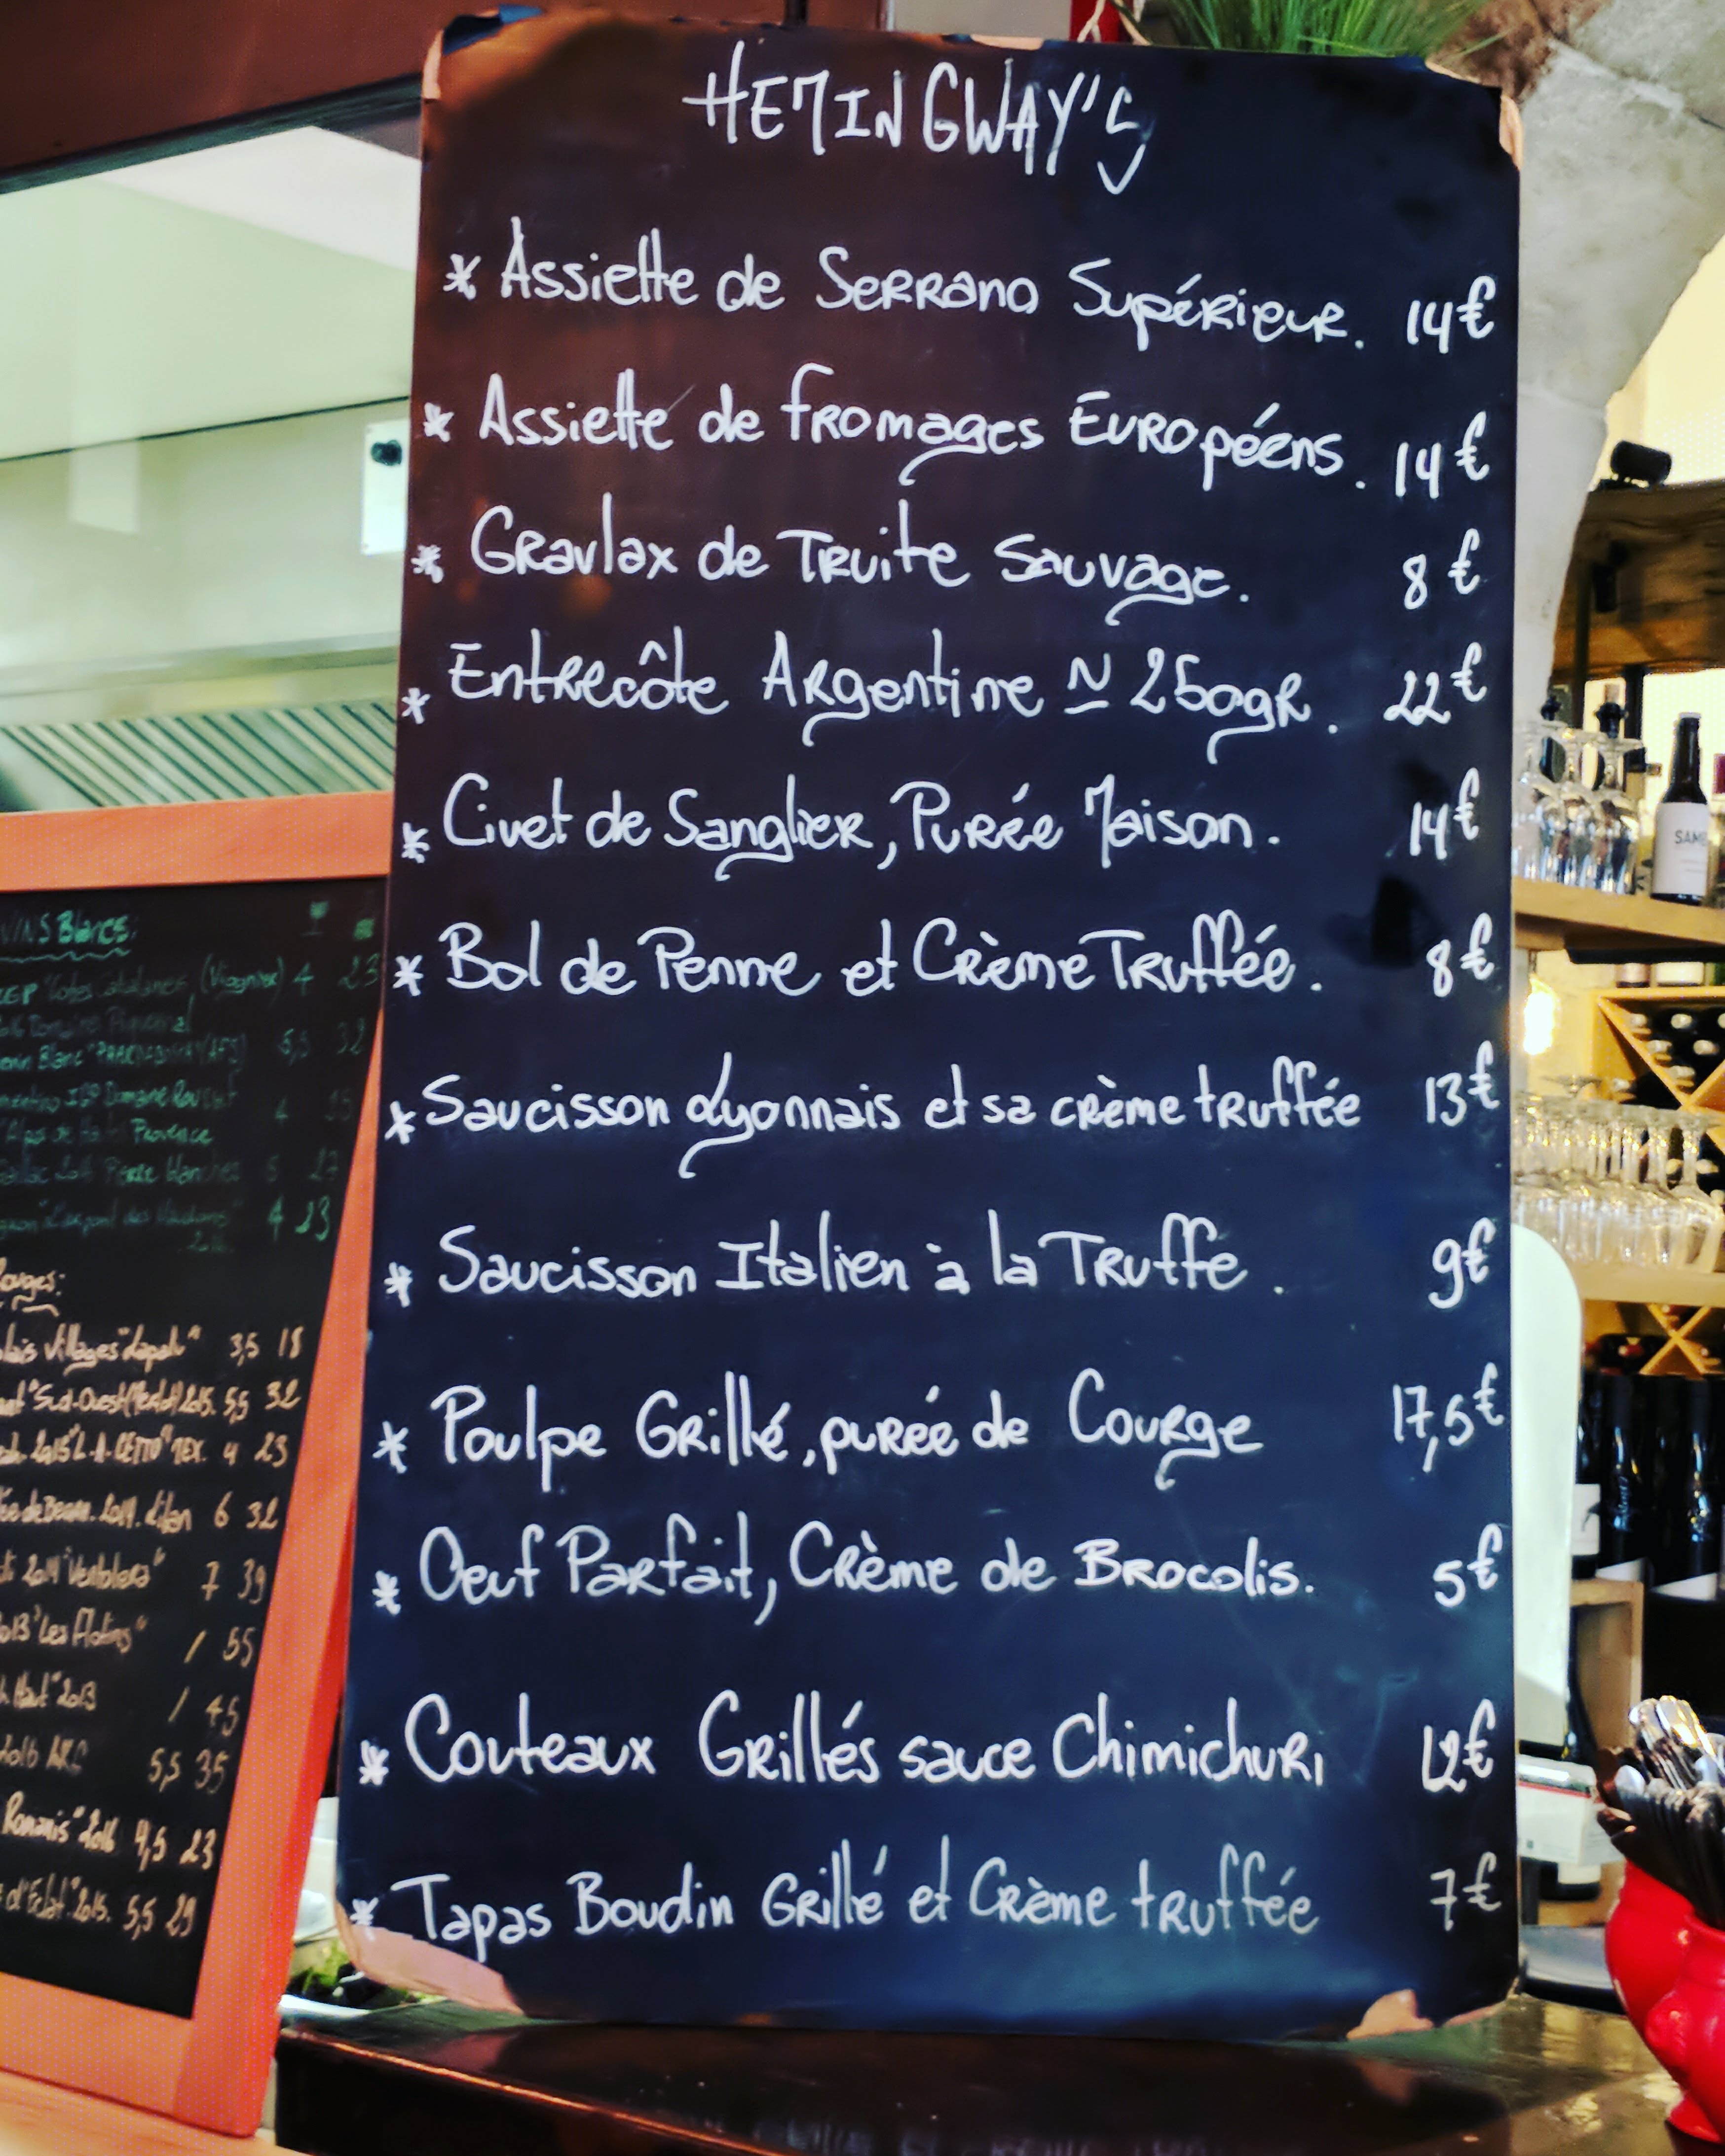 HEMINGWAY'S
* Assiette de Serrano Supérieur. 14€
* Assiette de fromages Européens. 14€
* Gravlax de Truite Sauvage. 8€
* Entrecôte Argentine ≃ 250gr. 22€
* Civet de Sanglier, Purée Maison. 14€
* Bol de Penne et Crème Truffée. 8€
* Saucisson Lyonnais et sa crème truffée 13€
* Saucisson Italien à la Truffe. 9€
* Poulpe Grillé, purée de Courge 17,5€
* Oeuf Parfait, Crème de Brocolis. 5€
* Couteaux Grillés sauce Chimichuri 12€
* Tapas Boudin Grillé et Crème truffée 7€
VINS Blancs:
4 23
5,5 32
Domaine
Provence
Pierre blanches 5 27
4 23
Rouges:
Villages 3,5 18
Sud-Ouest 2015. 5,5 32
2015 "L.A. CETTO" MEX. 4 23
2014. 6 32
2014 7 39
2013 "Les / 55
2013 / 45
2016 5,5 35
2016 4,5 23
d'Eclat" 2015. 5,5 29
SAM